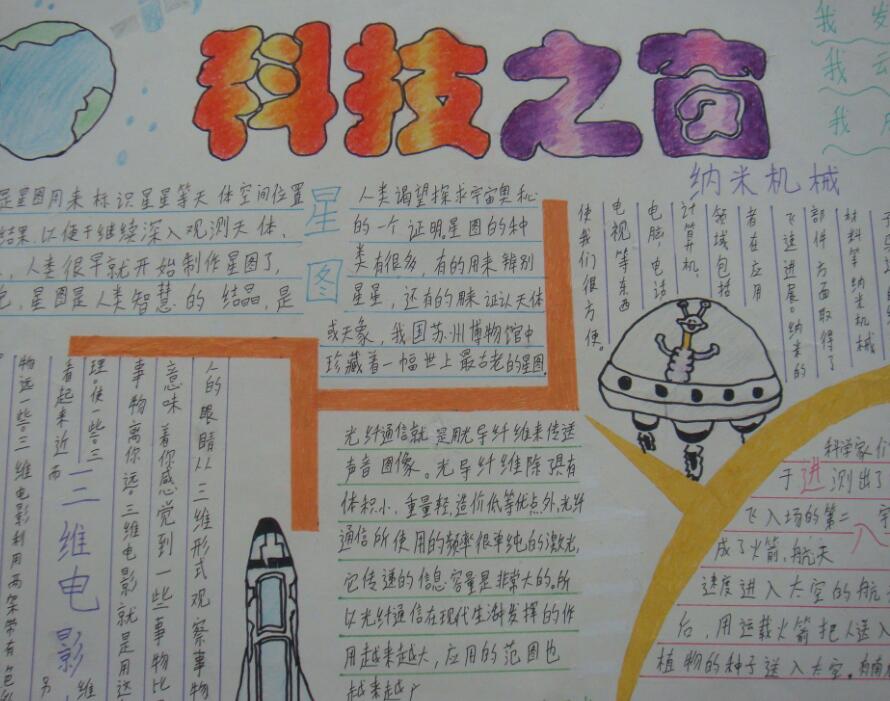 科技之窗
我 发
我 云
我
是星图用来标识星星等天体空间位置
结果,以便于继续深入观测天体,
人类很早就开始制作星图了,
星图是人类智慧的结晶,是
星图
人类渴望探求宇宙奥秘
的一个证明。星图的种
类有很多,有的用来辨别
星星,还有的用来证认天体
或天象,我国苏州博物馆中
珍藏着一幅世上最古老的星图。
纳米机械
材料等纳米机械
部件方面取得了
飞速进展。纳米的
者在应用
领域包括
计算机,
电脑,电话
电视等东西
使我们很方便。
三维电影
人的眼睛以三维形式观察事物
意味着你感觉到一些事物比
事物离你远。三维电影就是用这
理。使一些三
维
看起来近而
另
物远一些。三维电影利用两架带有色
光纤通信就是用光导纤维来传送
声音图像。光导纤维除了具有
体积小,重量轻,造价低等优点外,光纤
通信所使用的频率很单纯的激光,
它传递的信息容量是非常大的。所
以光纤通信在现代生活中发挥的作
用越来越大,应用的范围也
越来越广
科学家们
于进测出了
飞入场的第二宇
成了火箭、航天
速度进入太空的航
后,用运载火箭把人送入
植物的种子送入太空。